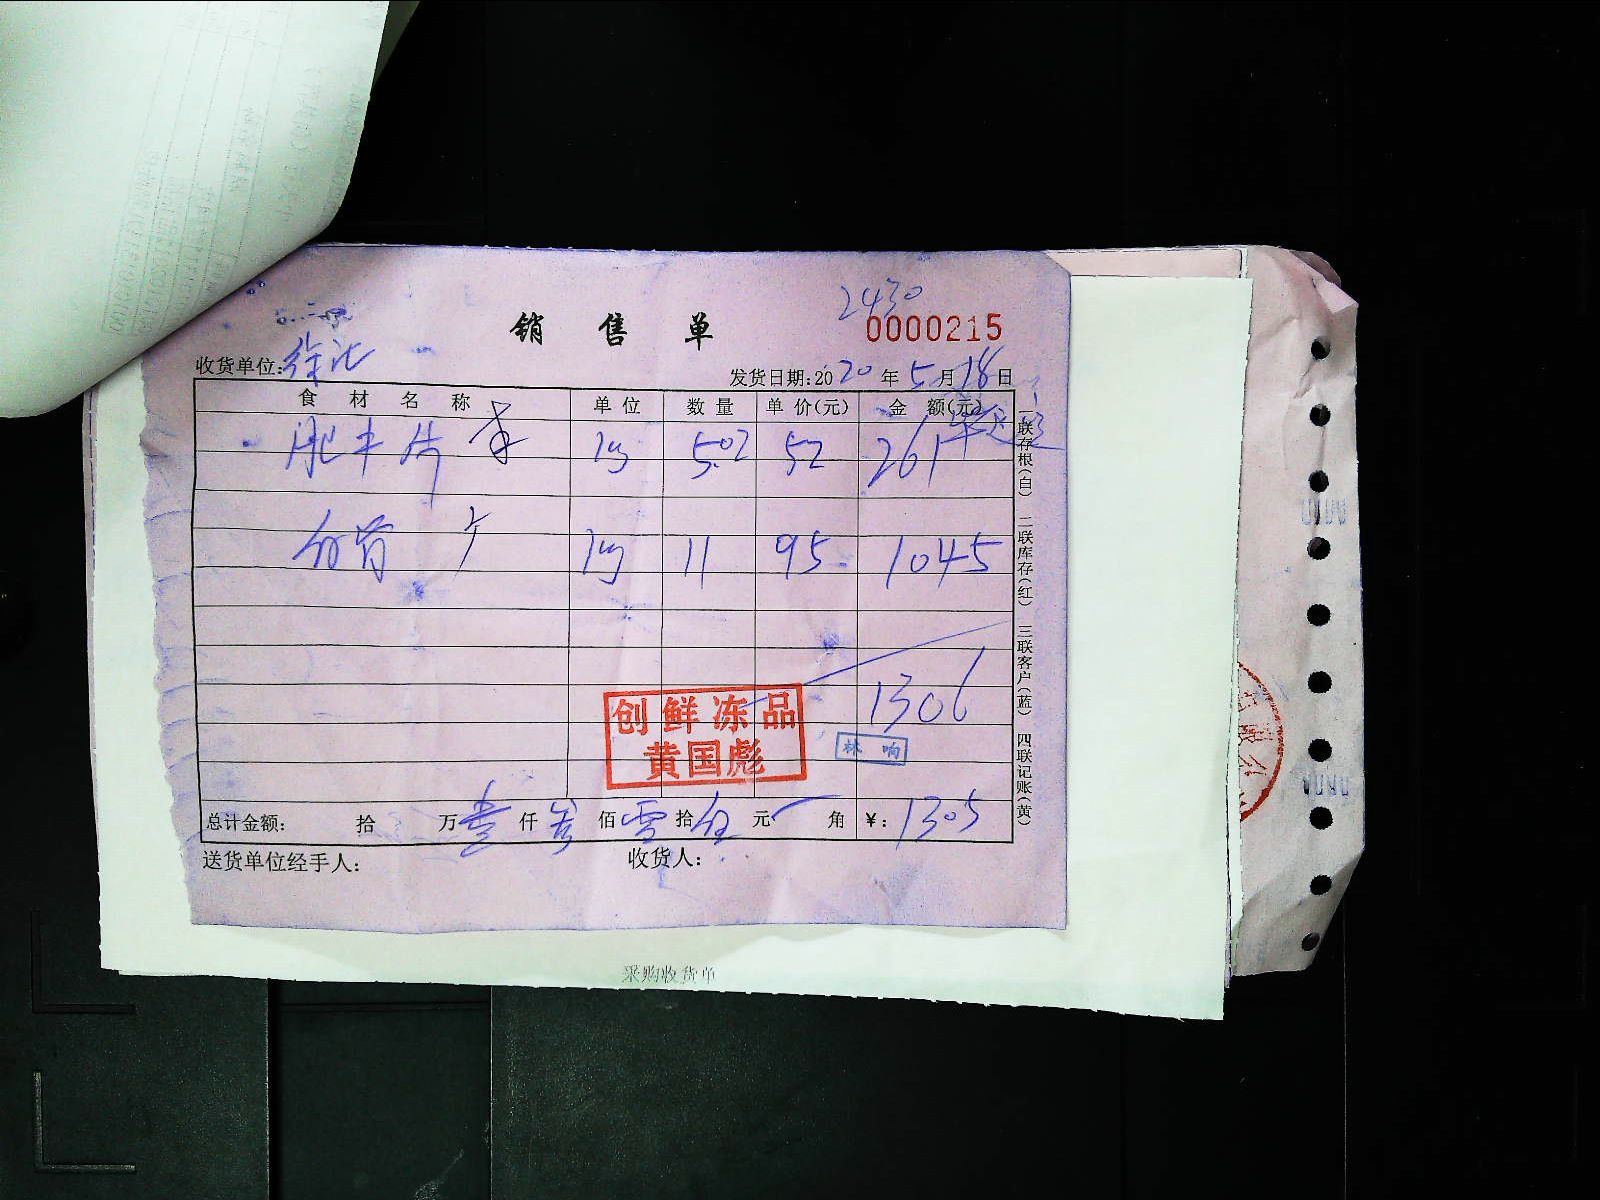 2430
销售单
0000215
收货单位:徐汇
发货日期:2020年5月18日
食材名称 单位 数量 单价(元) 金额(元)
肥牛片 kg 5.02 52 261
kg 11 95 1045
1306
创鲜冻品
黄国彪
林响
总计金额: 拾 万壹仟叁佰零拾伍元 角 ¥:1305
送货单位经手人: 收货人:
一联存根(白) 二联库存(红) 三联客户(蓝) 四联记账(黄)
采购收货单